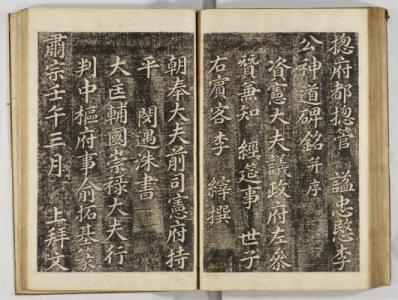 摠府都摠管 謚忠愍李
公神道碑銘并序
資憲大夫議政府左叅
贊兼知 經筵事 世子
右賓客李 縡撰
朝奉大夫前司憲府持
平 閔遇洙書
大匡輔國崇祿大夫行
判中樞府事俞拓基篆
肅宗壬午三月 上拜文